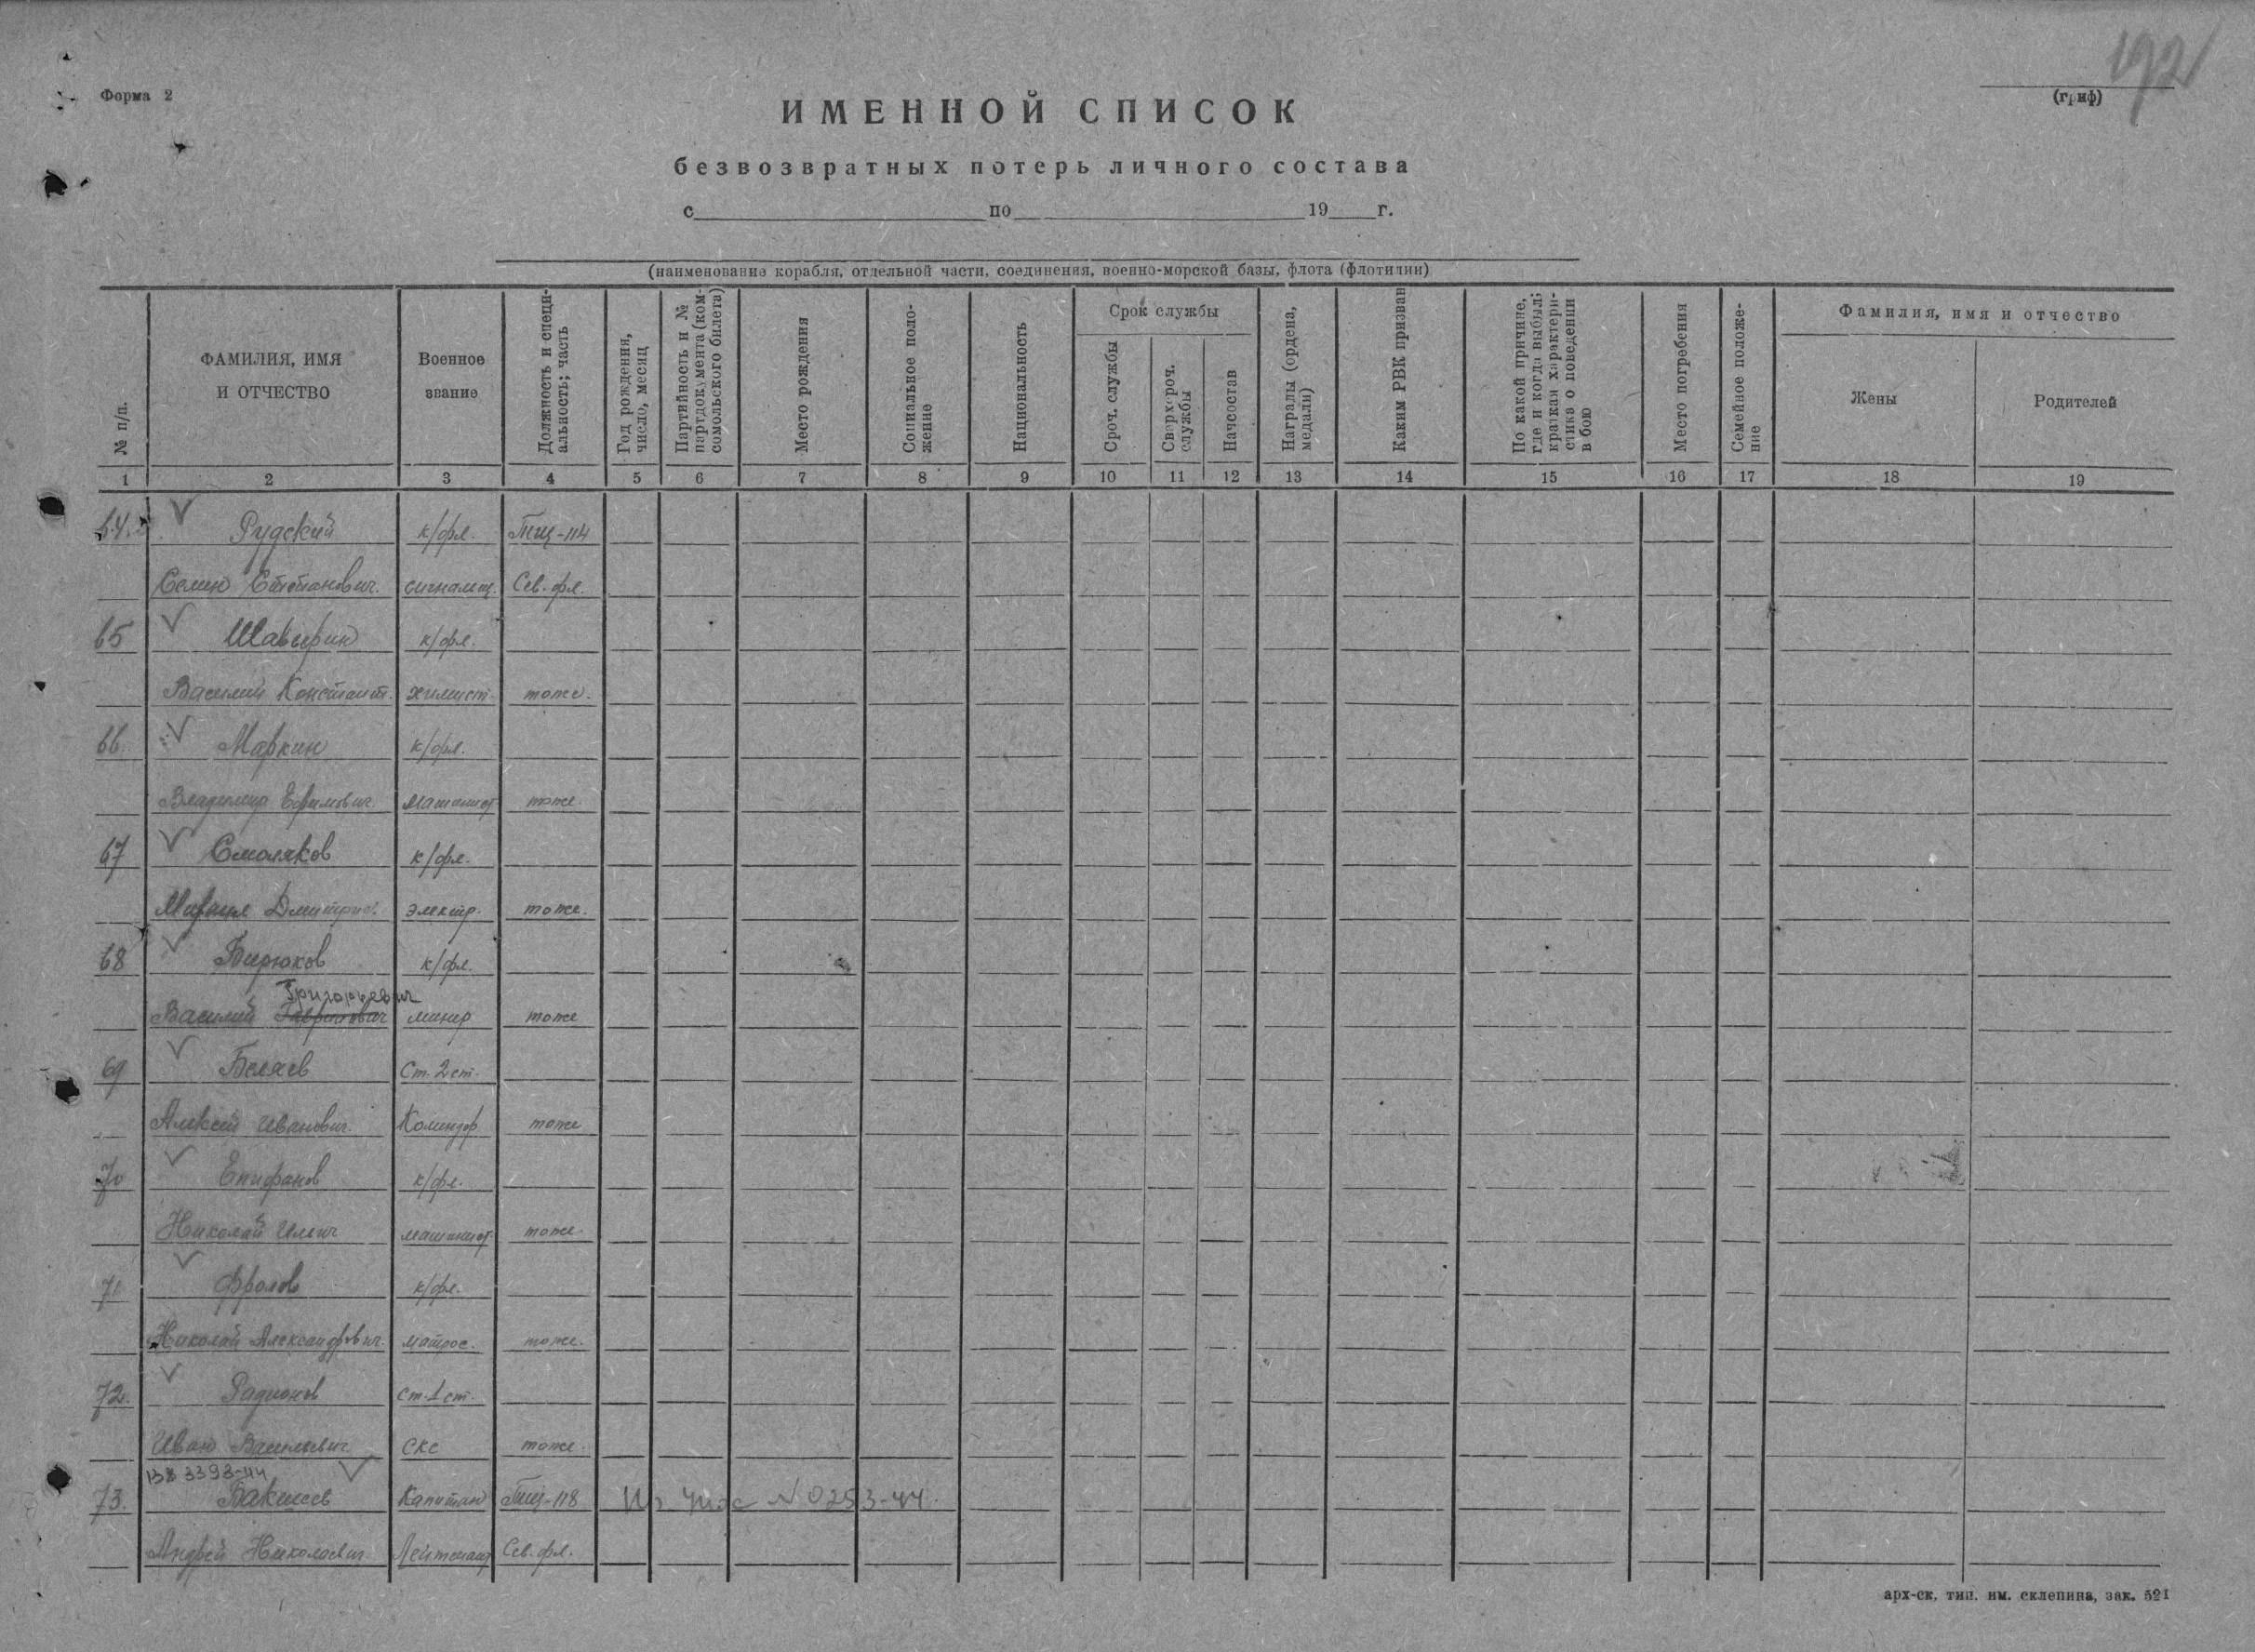 192
Форма 2
(гриф)
ИМЕННОЙ СПИСОК
безвозвратных потерь личного состава
с по 19 г.
(наименование корабля, отдельной части, соединения, военно-морской базы, флота (флотилии)
№ п/п.
ФАМИЛИЯ, ИМЯ И ОТЧЕСТВО
Военное звание
Должность и специ-альность; часть
Год рождения, число, месяц
Партийность и № партдокумента (ком-сомольского билета)
Место рождения
Социальное поло-жение
Национальность
Срок службы
Сроч. службы
Сверхсроч. службы
Начсостав
Награды (ордена, медали)
Каким РВК призван
По какой причине, где и когда выбыл; краткая характери-стика о поведении в бою
Место погребения
Семейное положе-ние
Фамилия, имя и отчество
Жены
Родителей
1 2 3 4 5 6 7 8 9 10 11 12 13 14 15 16 17 18 19
64. Рудский к/фл. Тщ-114
Семен Степанович сигнальщ. Сев. фл.
65 Шаверин к/фл.
Василий Констант. химист. тоже.
66. Маркин к/фл.
Владимир Ефимович машинист тоже
67 Смоляков к/фл.
Михаил Дмитрие. электр. тоже.
68 Бирюков к/фл.
Григорьевич
Василий минер тоже
69 Беляев Ст. 2 ст.
Алексей Иванович. Комендор тоже
70 Епифанов к/фл.
Николай Ильич машинист тоже.
71 Фролов к/фл.
Николай Александрович. матрос. тоже.
72. Радионов ст. 1 ст.
Иван Васильевич СКС тоже.
3393-44
73. Бакшеев Капитан Тщ-118 № 0253-44.
Андрей Николаевич Лейтенант Сев. фл.
арх-ск, тип. им. склепина, зак. 521